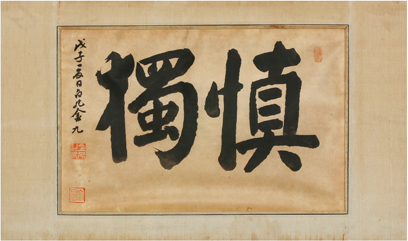 慎獨
戊子二月白凡金九